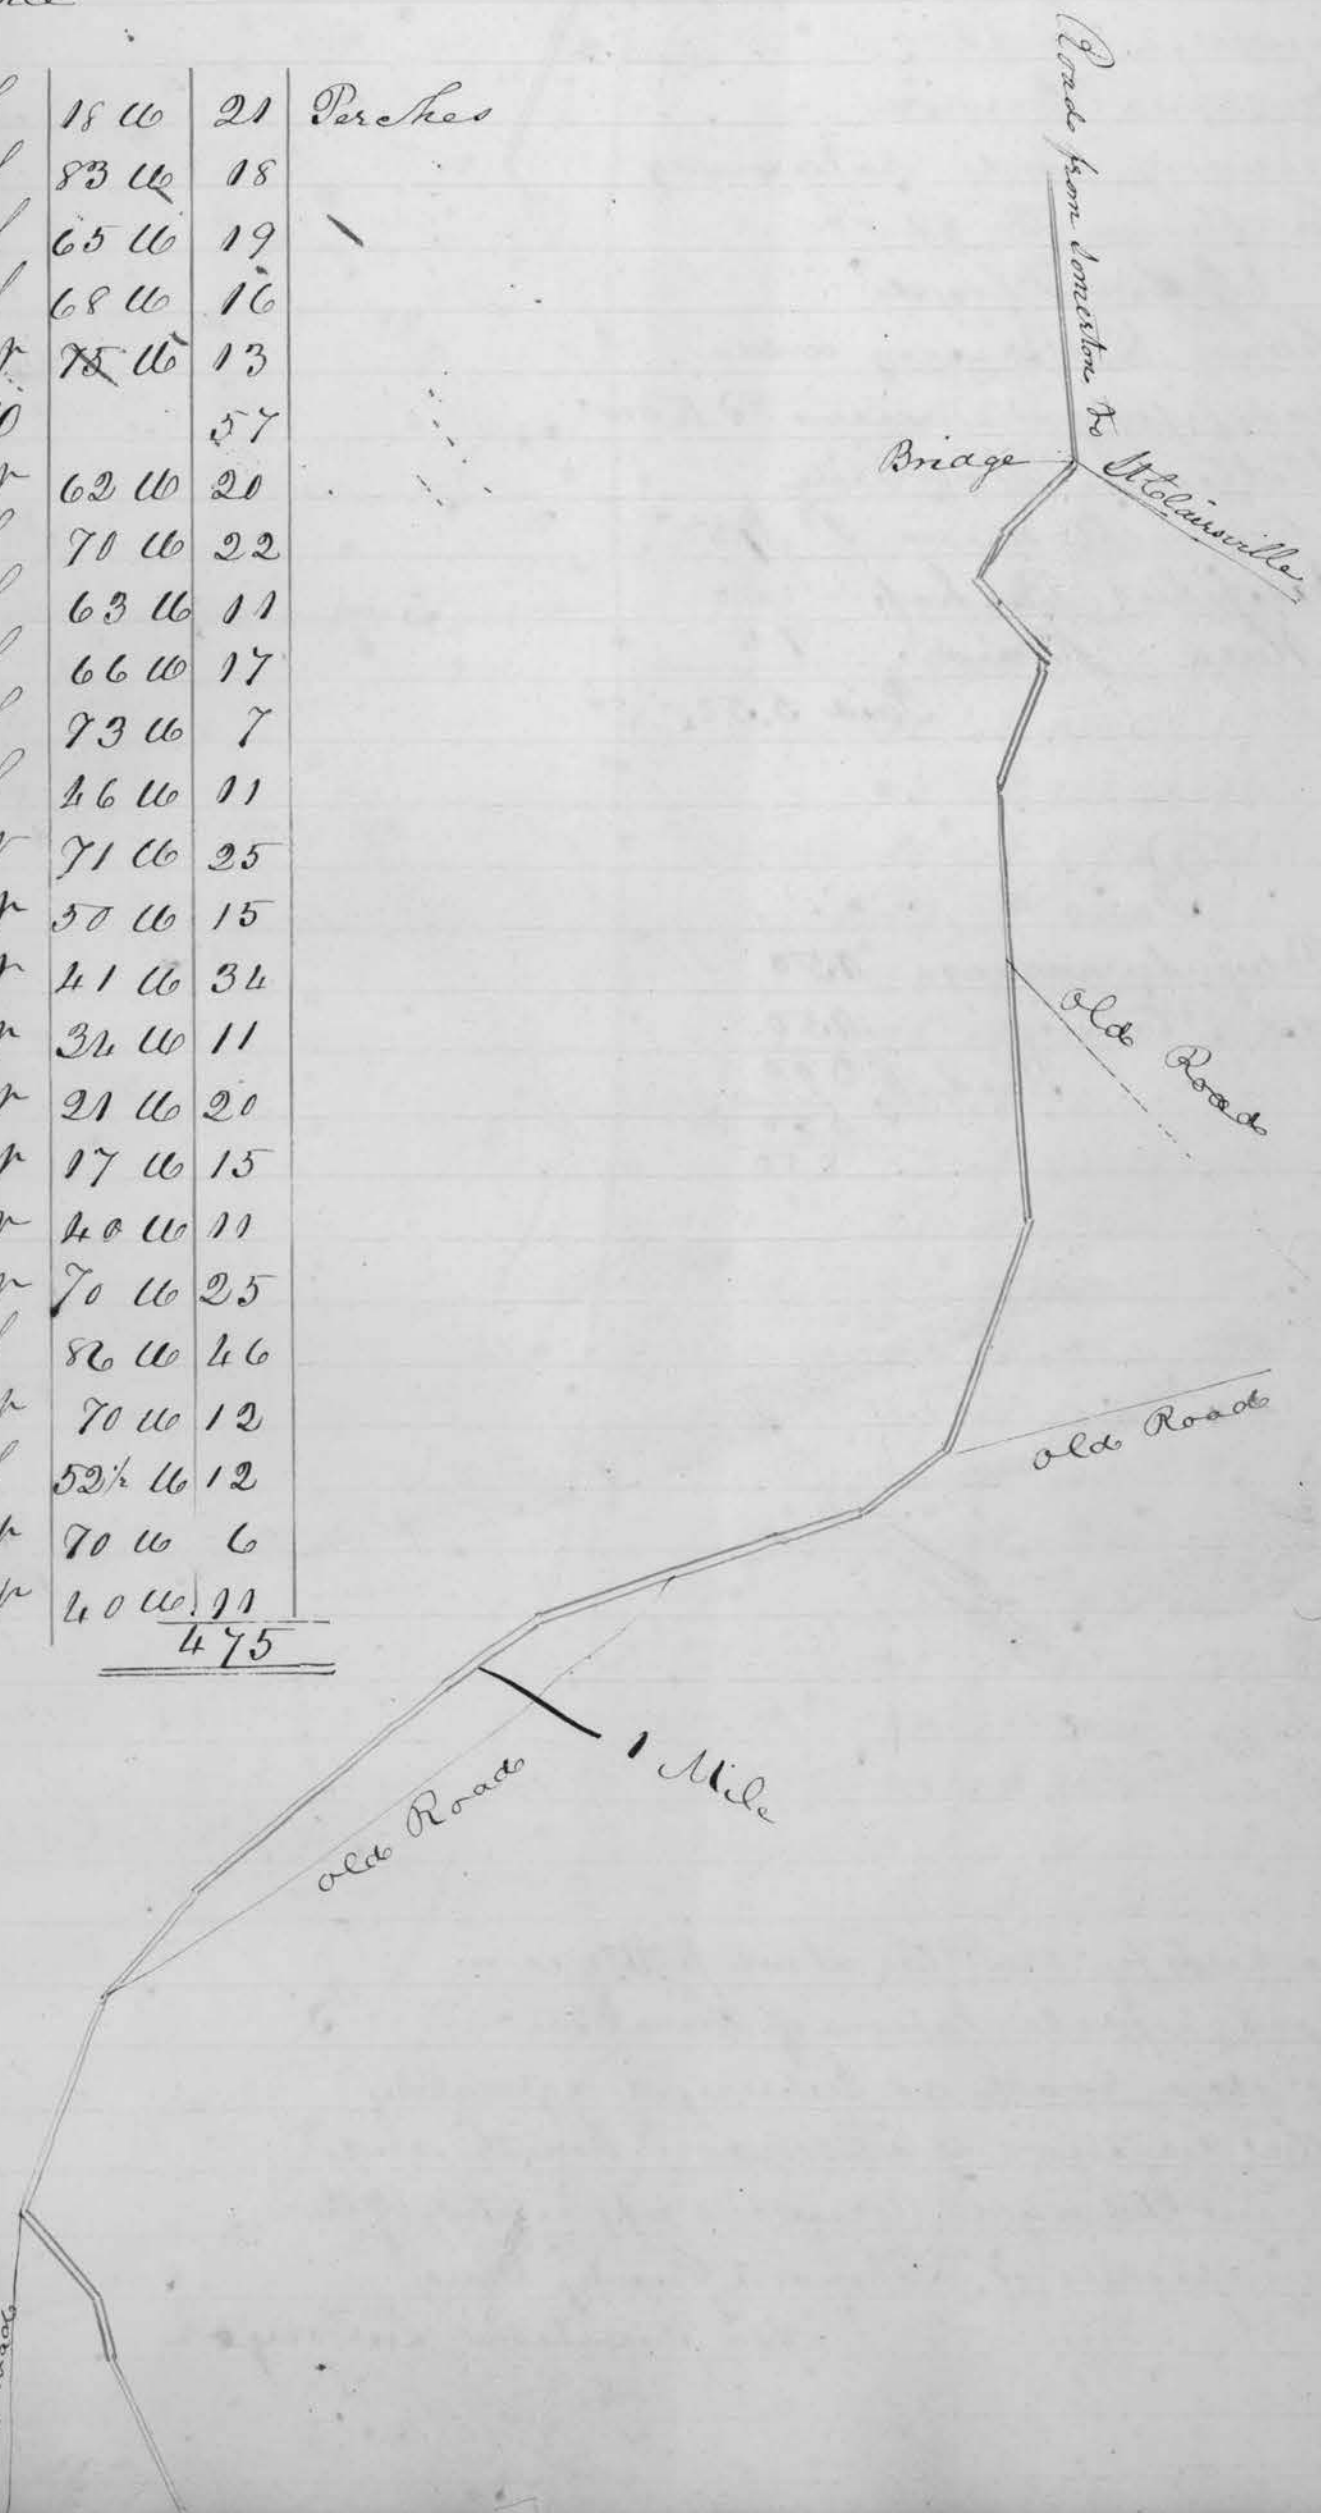 18 W 21 Perches
83 W 18
65 W 19
68 W 16
75 W 13
57
62 W 20
70 W 22
63 W 11
66 W 17
73 W 7
46 W 11
71 W 25
50 W 15
41 W 34
34 W 11
21 W 20
17 W 15
40 W 11
70 W 25
86 W 46
70 W 12
52½ W 12
70 W 6
40 W 11
475
Road from Somerton to
St Clairsville
Bridge
old Road
old Road
1 Mile
old Road